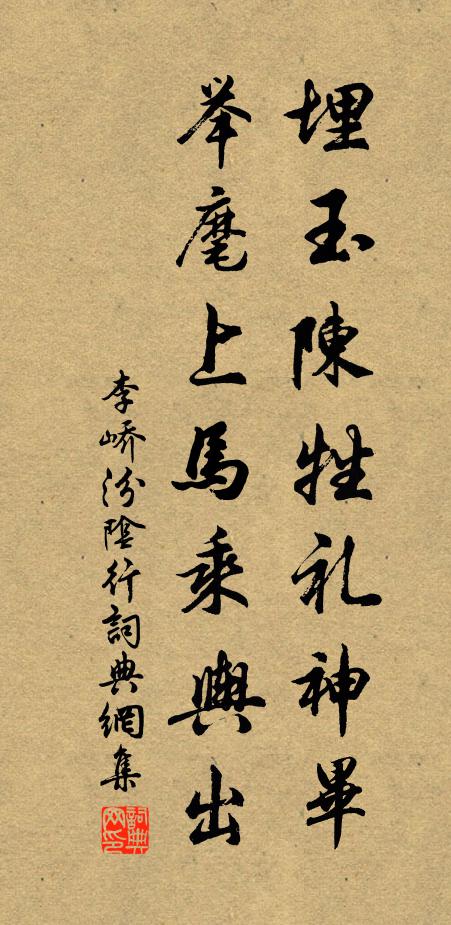 埋玉陳牲礼神畢
举麾上馬乘輿出
李嶠汾陰行詞典網集
詞典网印